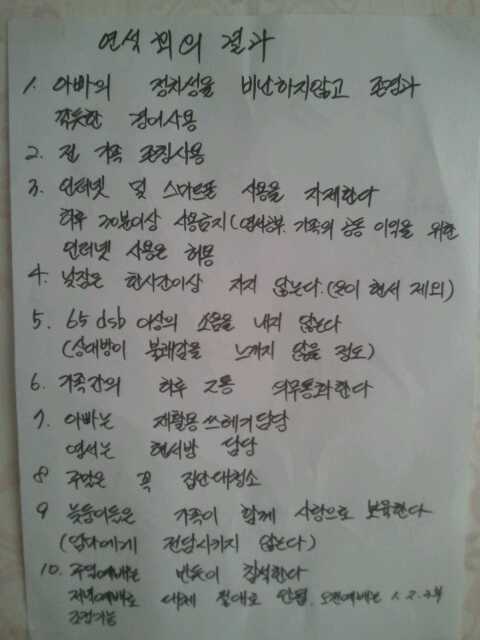 연석 회의 결과
1. 아빠의 정치성을 비난하지않고 존경과
깍듯한 경어사용
2. 전 가족 존칭사용
3. 인터넷 및 스마트폰 사용을 자제한다
하루 30분이상 사용금지(영서공부. 가족의 공동 이익을 위한
인터넷 사용은 허용
4. 낮잠은 한시간이상 자지 않는다.(윤이 현서 제외)
5. 65 dsb 이상의 소음을 내지 않는다
(상대방이 불쾌감을 느끼지 않을 정도)
6. 가족간의 하루 2통 의무통화한다
7. 아빠는 재활용쓰레기담당
영서는 현서방 담당
8 주말은 꼭 집안대청소
9 늦둥이들은 가족이 함께 사랑으로 보육한다
(엄마에게 전담시키지 않는다)
10. 주일예배는 반듯이 참석한다
저녁예배로 대체 절대로 안됨. 오전예배는 1.2.3부
조정가능